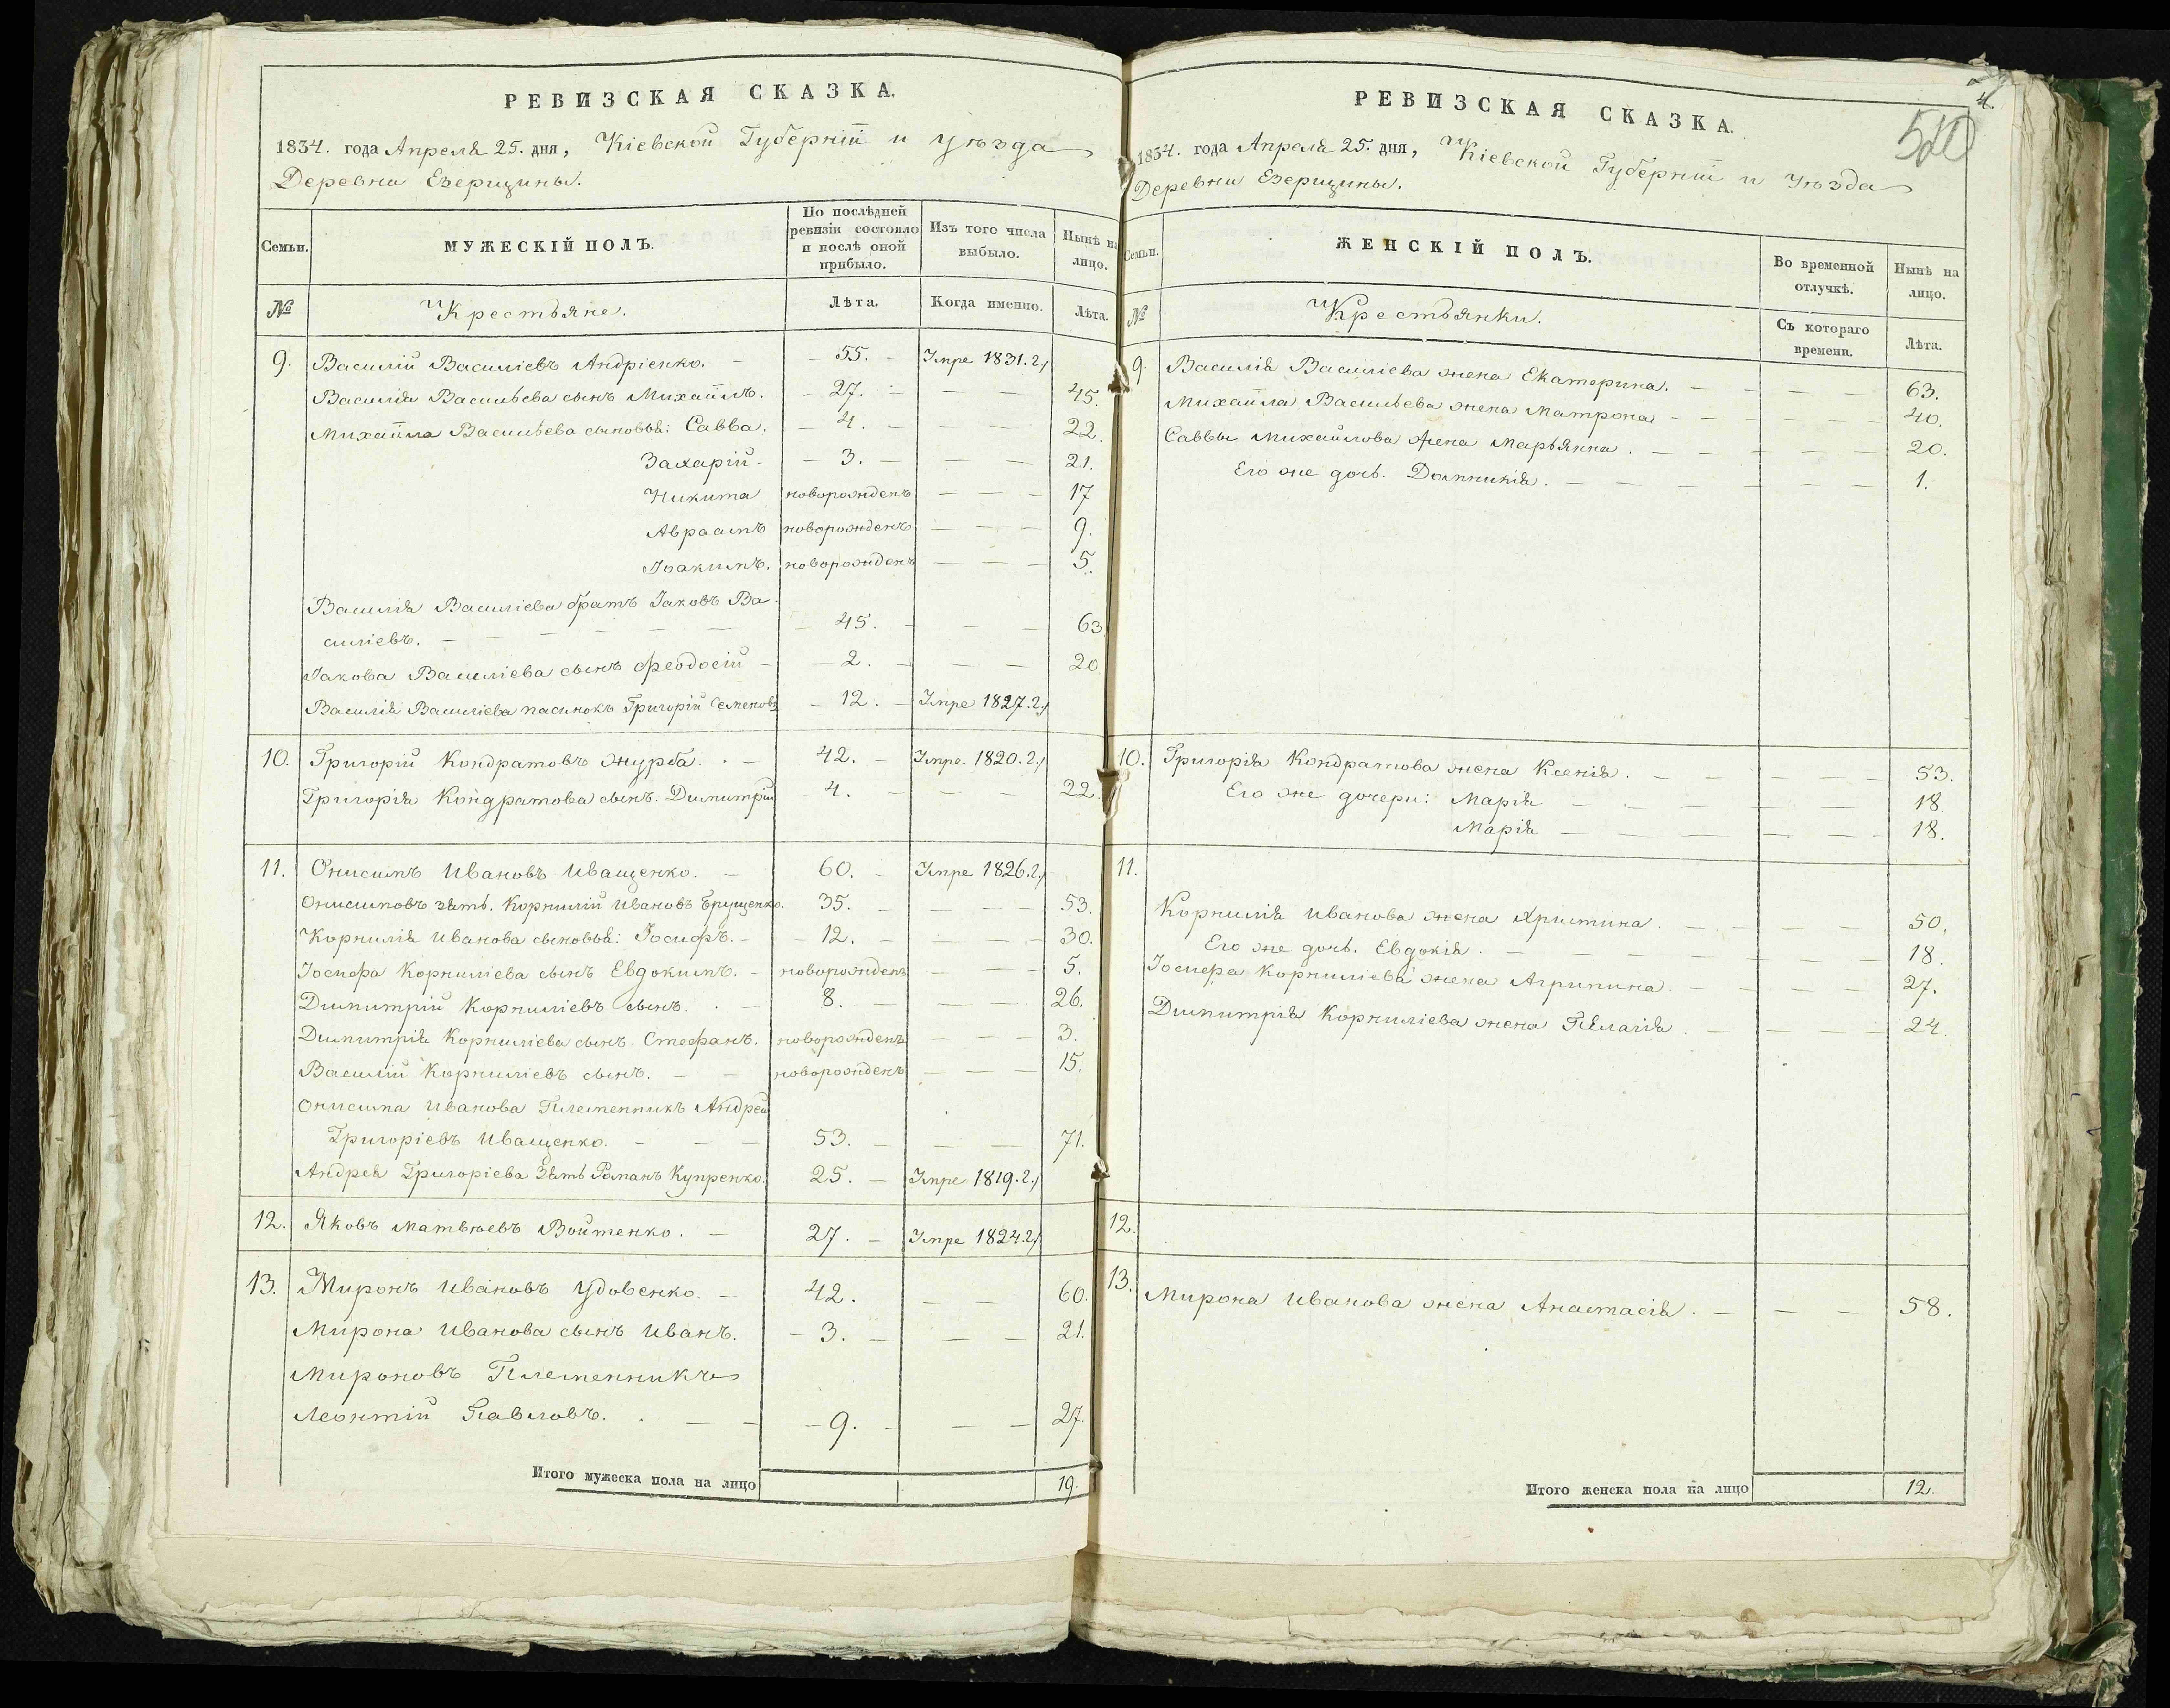 РЕВИЗСКАЯ СКАЗКА.
1834. года Апреля 25. дня, Кіевской Губерніи и уѣзда
Деревни Езерщины.
Семьи.
МУЖЕСКІЙ ПОЛЪ.
По послѣдней ревизіи состояло и послѣ оной прибыло.
Изъ того числа выбыло.
Нынѣ на лицо.
№ Крестьяне. Лѣта. Когда именно. Лѣта.
9. Василій Василіевъ Андріенко. — 55. — Умре 1831. г.
Василія Васильева сынъ Михаилъ. — 27. — — — 45.
Михаила Васильева сыновья: Савва. — 4. — — — 22.
Захарій — — 3. — — — 21.
Никита новорожденъ — — — 17
Авраамъ новорожденъ — — — 9.
Іоакимъ. новорожденъ — — — 5.
Василія Василіева братъ Іаковъ Ва-
силіевъ. — — — — — — 45. — — — 63
Іакова Василіева сынъ Феодосій — — 2. — — — 20
Василія Василіева пасынокъ Григорій Семеновъ — 12. — Умре 1827. г.
10. Григорій Кондратовъ Журба. . — 42. — Умре 1820. г.
Григорія Кондратова сынъ. Димитрій — 4. — — — 22.
11. Онисимъ Ивановъ Иващенко. — 60. — Умре 1826. г.
Онисимовъ зять. Корнилій Ивановъ Грущенко. 35. — — — — 53.
Корнилія Иванова сыновья: Іосифъ. — — 12. — — — — 30.
Іосифа Корниліева сынъ Евдокимъ. — новорожденъ — — — 5.
Димитрій Корниліевъ сынъ. . — 8. — — — — 26.
Димитрія Корниліева сынъ. Стефанъ. новорожденъ — — — 3.
Василій Корниліевъ сынъ. — — новорожденъ — — — 15.
Онисима Иванова Племенникъ Андрей
Григоріевъ Иващенко. — — — 53. — — — 71.
Андрея Григоріева Зять Романъ Купренко. 25. — Умре 1819. г.
12. Яковъ Матвѣевъ Войтенко. — 27. — Умре 1824. г.
13. Миронъ Ивановъ Удовенко. — 42. — — 60.
Мирона Иванова сынъ Иванъ. — 3. — — — 21.
Мироновъ Племенникъ
Леонтій Павловъ. . — — — 9. — — — 27.
Итого мужеска пола на лицо 19.
РЕВИЗСКАЯ СКАЗКА.
4.
1834. года Апреля 25. дня, Кіевской Губерніи и Уѣзда
Деревни Езерщины.
Семьи.
ЖЕНСКІЙ ПОЛЪ.
Во временной отлучкѣ.
Нынѣ на лицо.
№ Крестьянки. Съ котораго времени. Лѣта.
9. Василія Василіева жена Екатерина. — — — — 63.
Михаила Васильева жена Матрона — — — — — 40.
Саввы Михайлова жена Марьянна. — — — — — 20.
Его же дочь. Домникія. — — — — — — 1.
10. Григорія Кондратова жена Ксенія. — — — — — 53.
Его же дочери: Марія — — — — — 18.
Марія — — — — — — 18.
11.
Корнилія Иванова жена Христина. — — — — 50.
Его же дочь. Евдокія. — — — — — — — 18.
Іосифа Корниліева жена Агрипина. — — — — 27.
Димитрія Корниліева жена Пелагія. — — — — 24.
12.
13. Мирона Иванова жена Анастасія. — — — 58.
Итого женска пола на лицо 12.